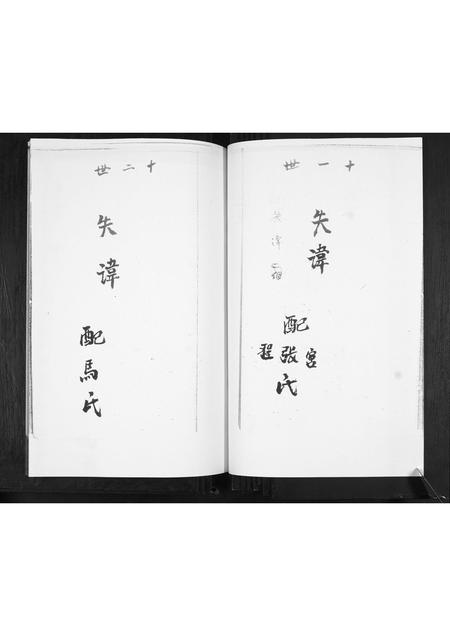 十一世
失諱
配宮張程氏
失諱
十二世
失諱
配馬氏